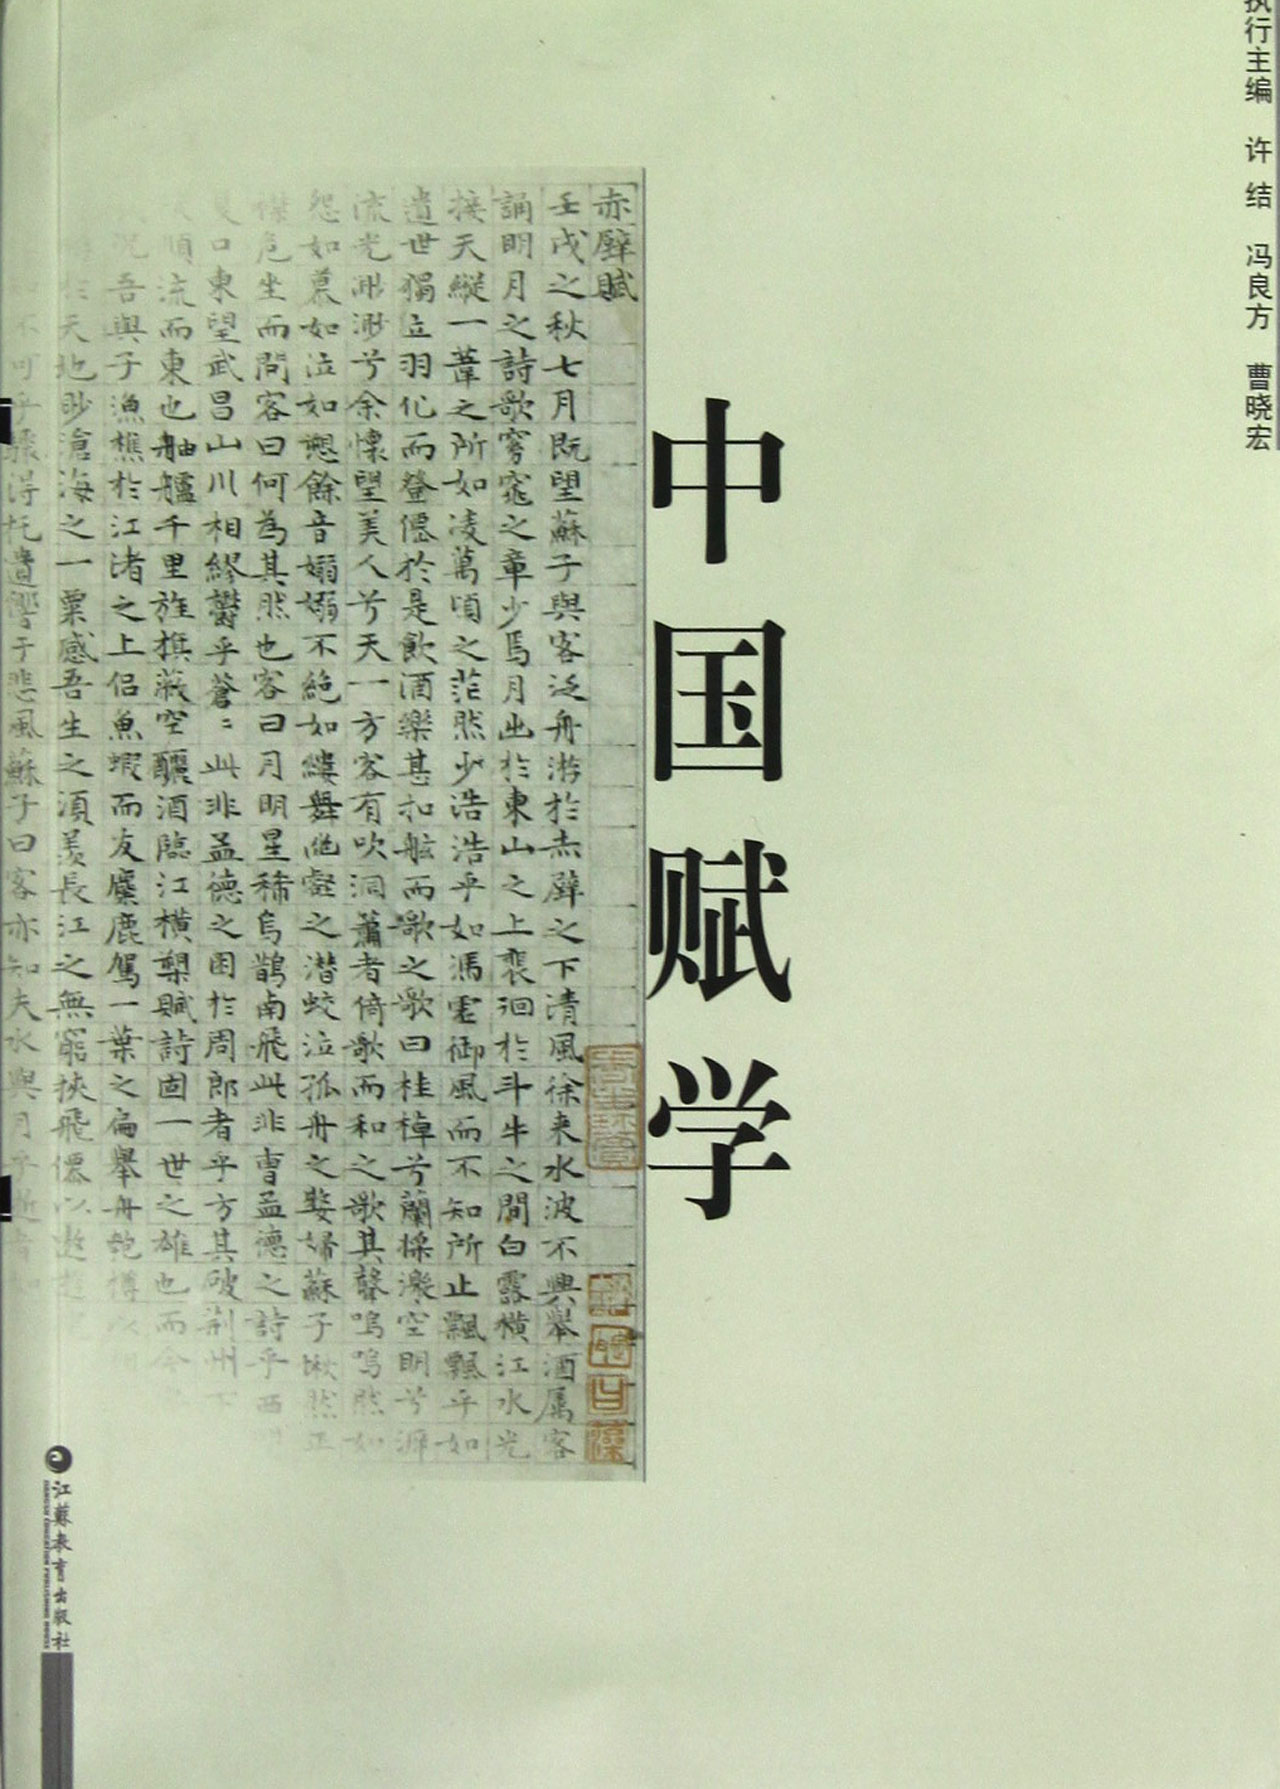 执行主编 许结 冯良方 曹晓宏
中国赋学
赤壁賦
壬戌之秋七月既望蘇子與客泛舟游於赤壁之下清風徐来水波不興舉酒属客
誦明月之詩歌窈窕之章少焉月出於東山之上裴洄於斗牛之間白露橫江水光
接天縱一葦之所如凌萬頃之茫然少浩浩乎如馮虚御風而不知所止飄飄乎如
遺世獨立羽化而登僊於是飲酒樂甚扣舷而歌之歌曰桂棹兮蘭槳激空明兮泝
流光渺渺兮余懷望美人兮天一方客有吹洞蕭者倚歌而和之歌其聲嗚嗚然如
怨如慕如泣如愬餘音嫋嫋不絶如縷舞幽壑之潜蛟泣孤舟之嫠婦蘇子愀然正
襟危坐而問客曰何為其然也客曰月明星稀烏鵲南飛此非曹孟德之詩乎西
夏口東望武昌山川相繆鬱乎蒼〻此非孟德之困於周郎者乎方其破荆州下
順流而東也舳艫千里旌旗蔽空釃酒臨江橫槊賦詩固一世之雄也而今
况吾與子漁樵於江渚之上侣魚蝦而友麋鹿駕一葉之扁舉舟匏樽以
於天地眇滄海之一粟感吾生之湏羡長江之無窮挾飛僊以遨遊
不可乎驟得托遺響于悲風蘇子曰客亦知夫水與月乎逝者如
江蘇教育出版社
JIANGSU EDUCATION PUBLISHING HOUSE